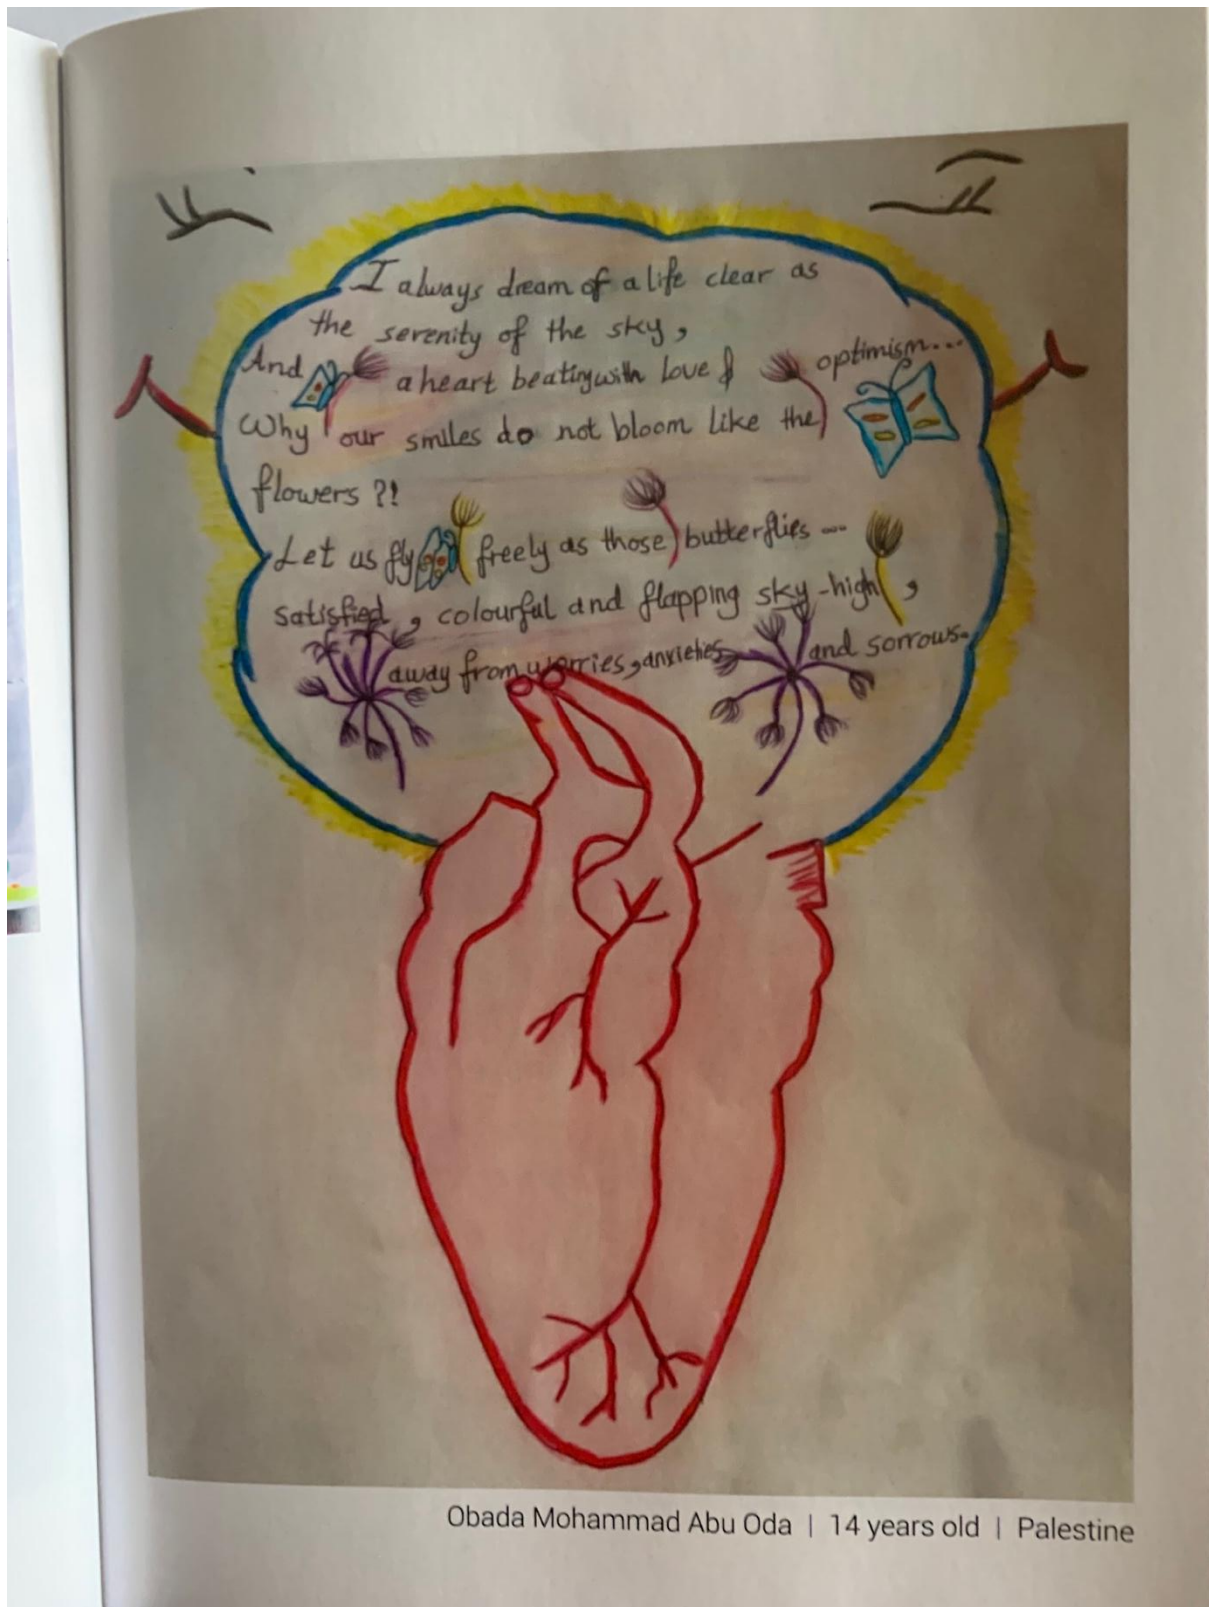 I always dream of a life clear as
the serenity of the sky,
And a heart beating with love & optimism...
Why our smiles do not bloom like the
flowers ?!
Let us fly freely as those butterflies ...
satisfied, colourful and flapping sky-high,
away from worries, anxieties and sorrows.
Obada Mohammad Abu Oda | 14 years old | Palestine